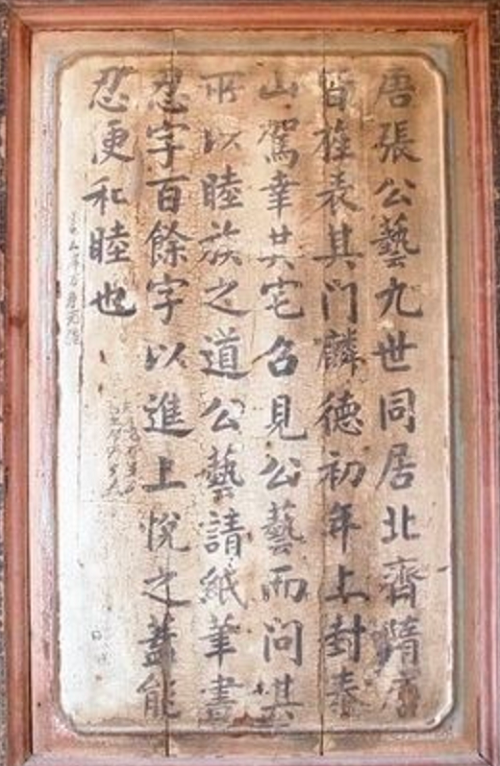 唐張公藝九世同居北齊隋唐
皆旌表其門麟德初年上封泰
山駕幸其宅召見公藝而問其
所以睦族之道公藝請紙筆書
忍字百餘字以進上悅之蓋能
忍更和睦也